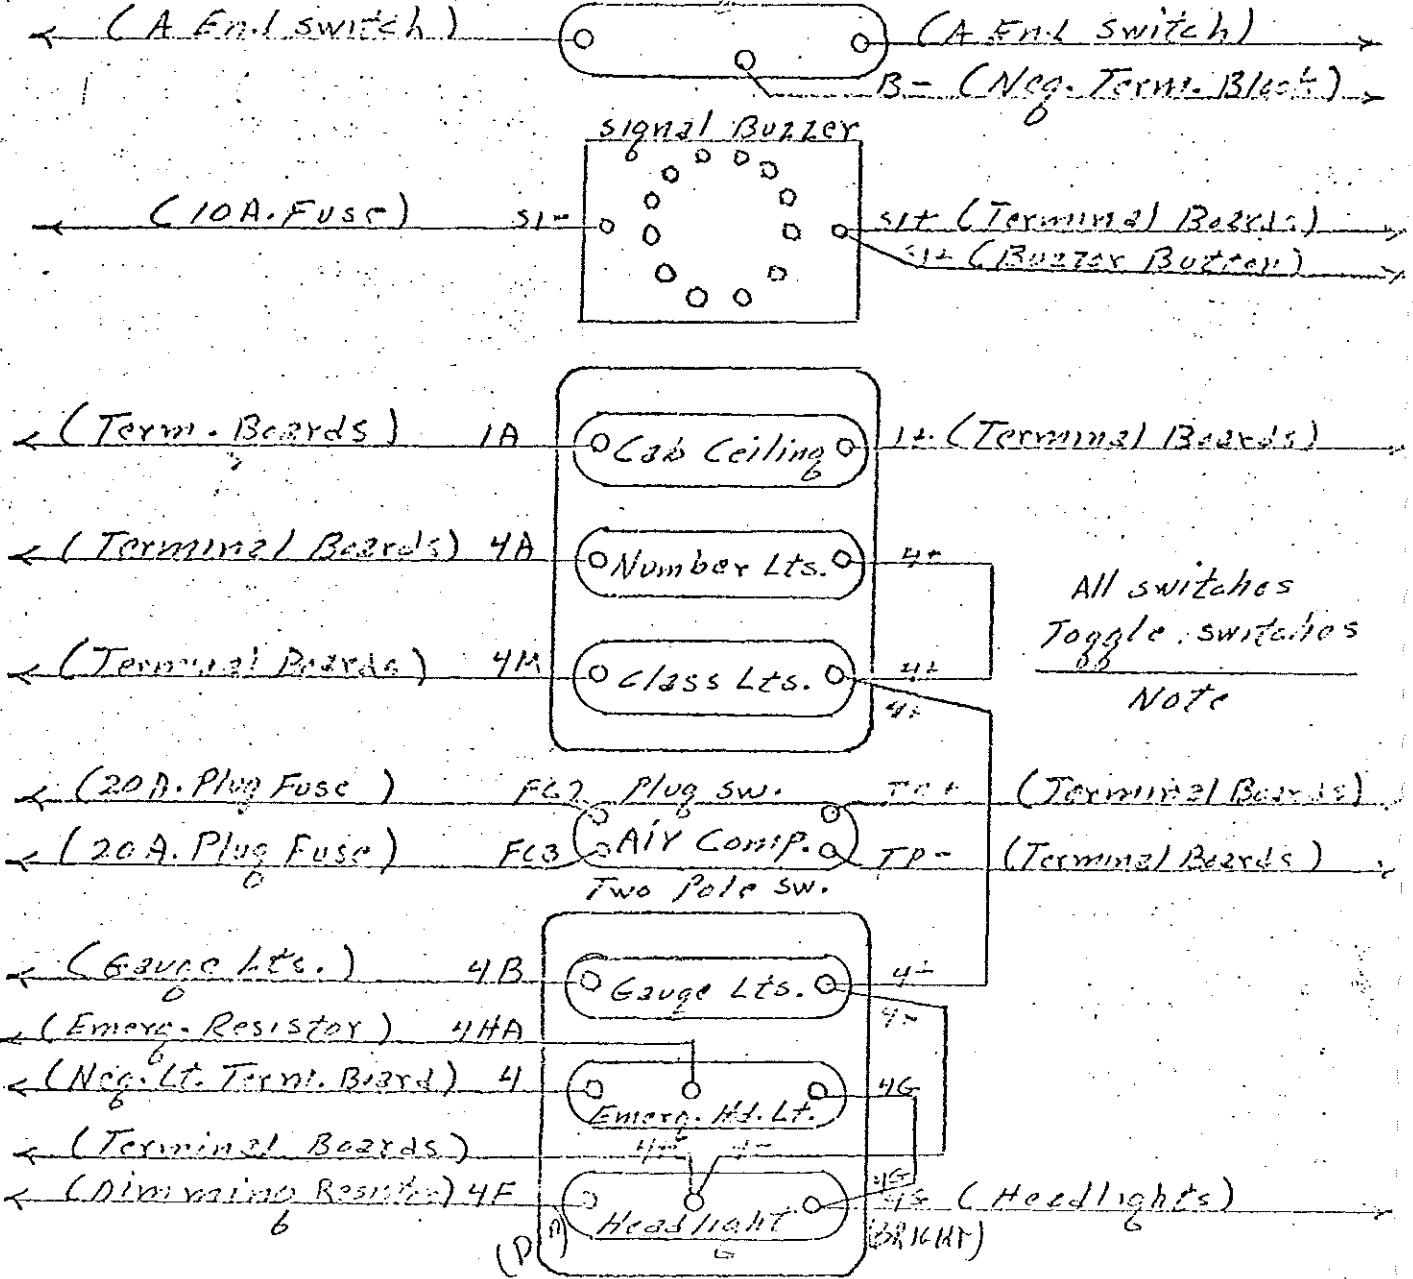 (A End switch) (A End switch)
B- (Neg. Term. Block)
Signal Buzzer
(10A. Fuse) S1- S1+ (Terminal Boards)
S1+ (Buzzer Button)
(Term. Boards) 1A Cab Ceiling 1+ (Terminal Boards)
(Terminal Boards) 4A Number Lts. 4+
All switches
Toggle switches
Note
(Terminal Boards) 4M Class Lts. 4+
4+
(20A. Plug Fuse) FC2 Plug Sw. (Terminal Boards)
(20A. Plug Fuse) FC3 Air Comp. TP- (Terminal Boards)
Two Pole Sw.
(Gauge Lts.) 4B Gauge Lts. 4+
4+
(Emerg. Resistor) 4HA
(Neg. Lt. Term. Board) 4 4G
Emerg. Hd. Lt.
(Terminal Boards) 4+ 4+
4G
(Dimming Resistor) 4F Headlight 4G (Headlights)
(BRIGHT)